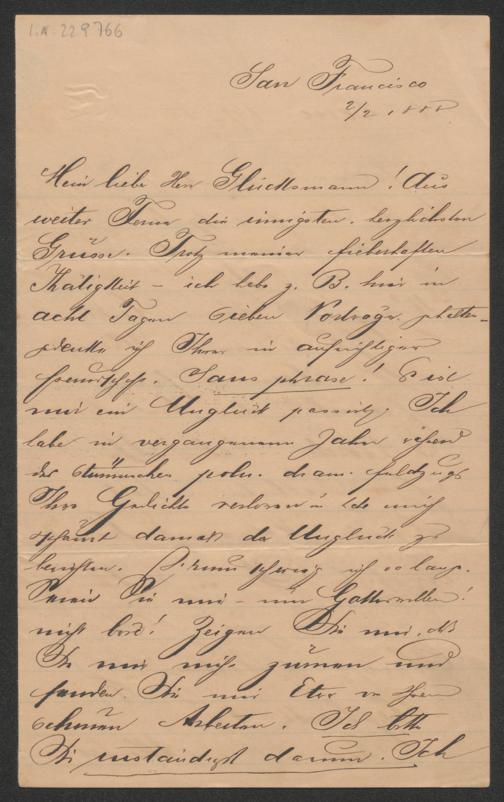 I.N. 229766
San Francisco
2/2 1888
Mein lieber Herr Glücksmann! Aus
weiter Ferne die innigsten, herzlichsten
Grüsse. Trotz meiner fieberhaften
Thätigkeit – ich habe z. B. hier in
acht Tagen sieben Vorträge gehalten –
denke ich Ihrer in aufrichtiger
Freundschaft. Sans phrase! Es ist
mir ein Unglück passirt. Ich
habe im vergangenen Jahre während
des stürmischen poln. dram. Feldzugs
Ihre Gedichte verloren u. ich mich
damals das Unglück zu
berichten. Darum schwieg ich so lange.
Seien Sie mir – um Gotteswillen!
nicht bös! Zeigen Sie mir, daß
Sie mir nicht zürnen und
senden Sie mir Etw. von Ihren
schönen Arbeiten. Ich bitte
Sie inständigst darum. Ich